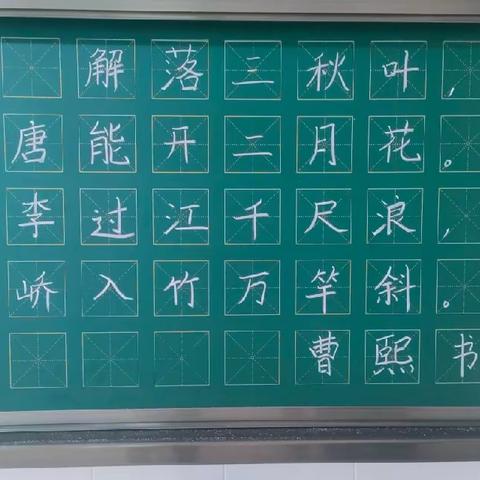 解落三秋叶，
唐能开二月花。
李过江千尺浪，
峤入竹万竿斜。
曹熙书